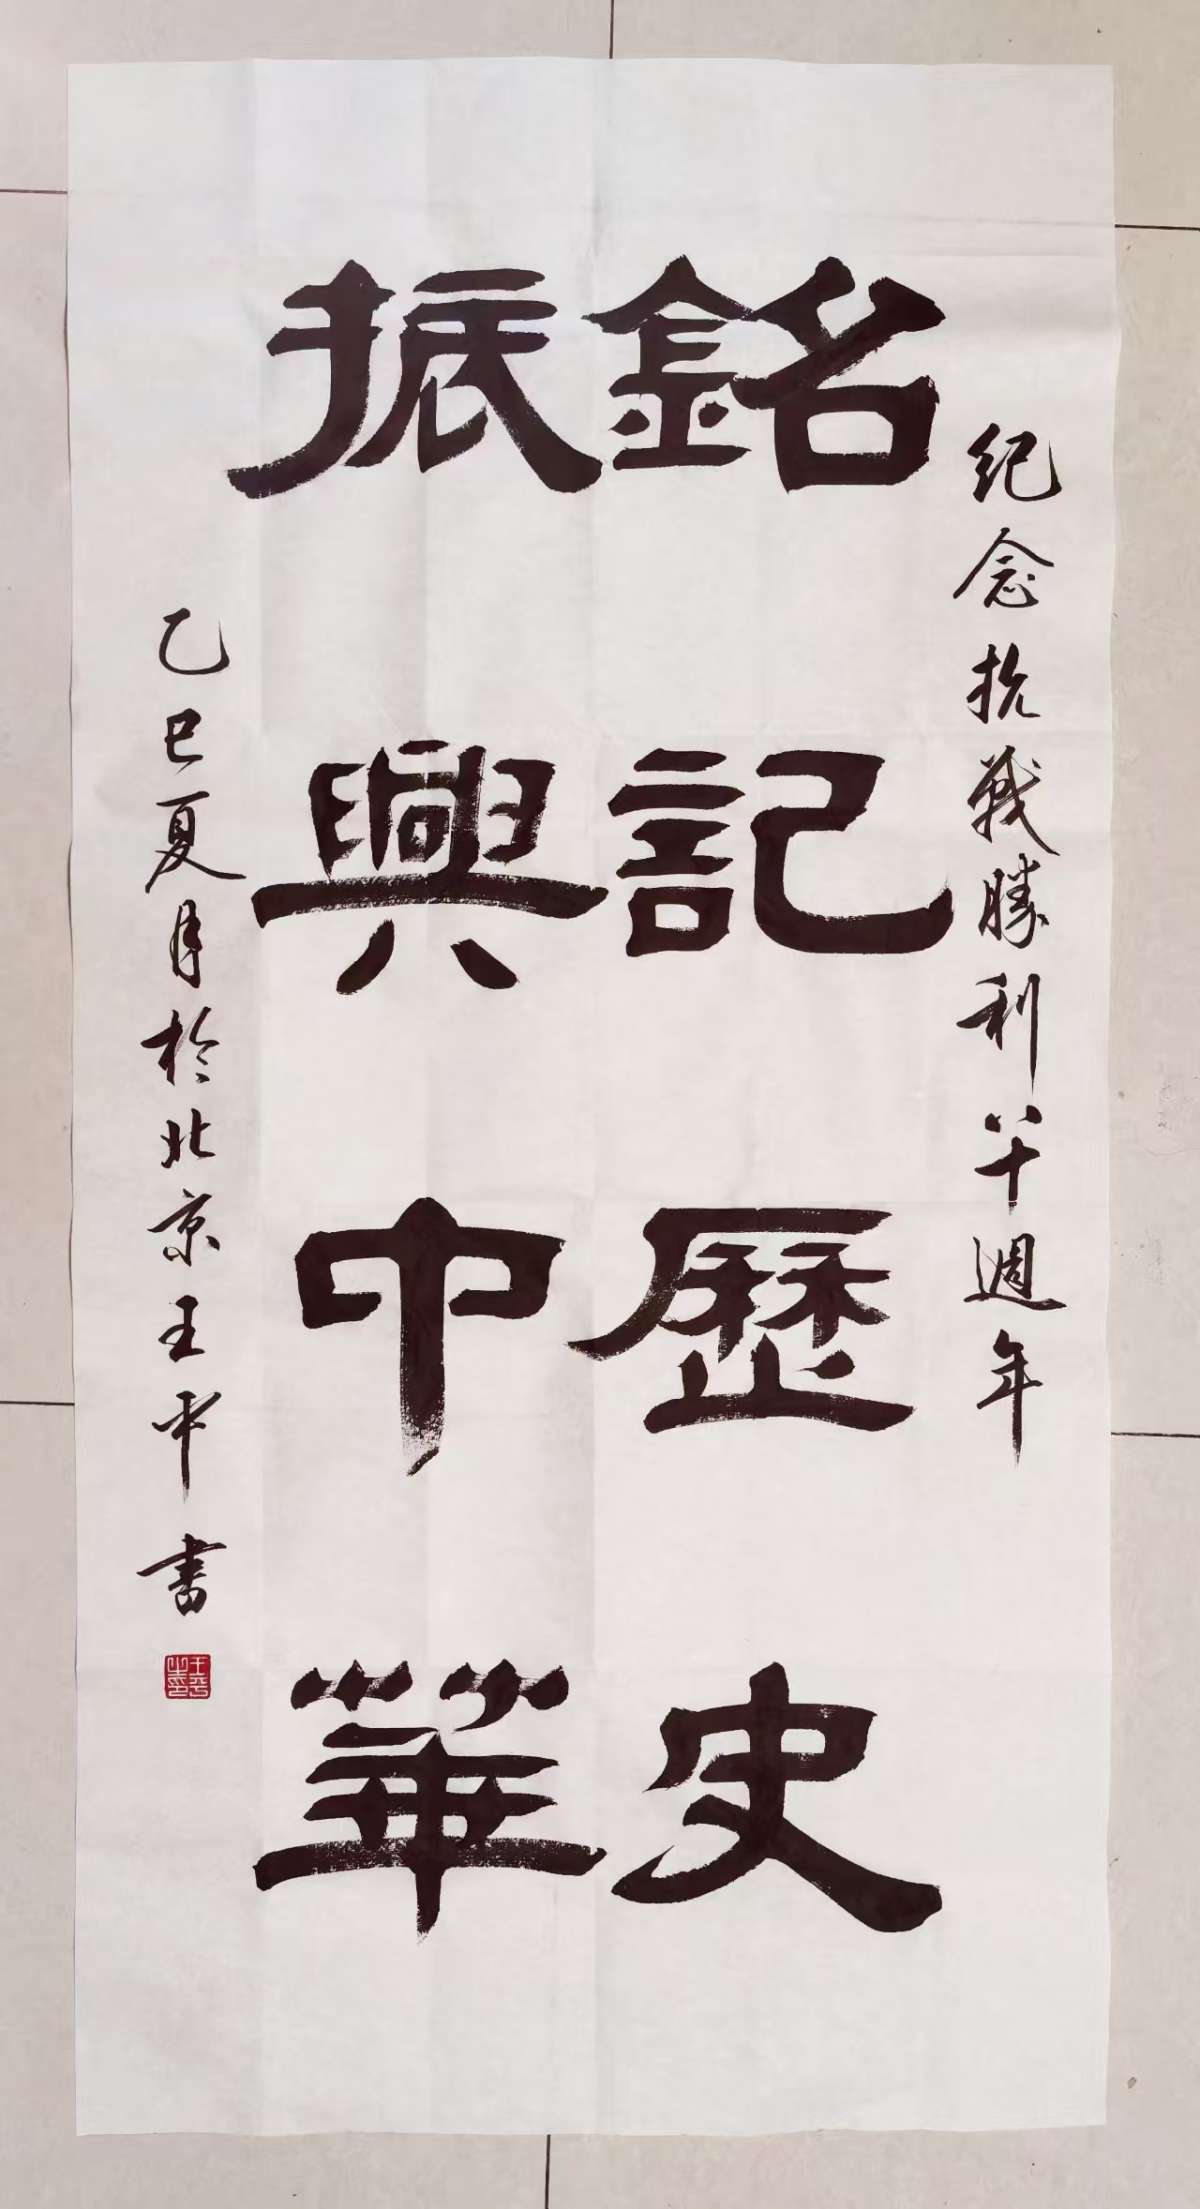 纪念抗战勝利八十週年
銘記歷史
振興中華
乙巳夏月於北京王平书
王平之印